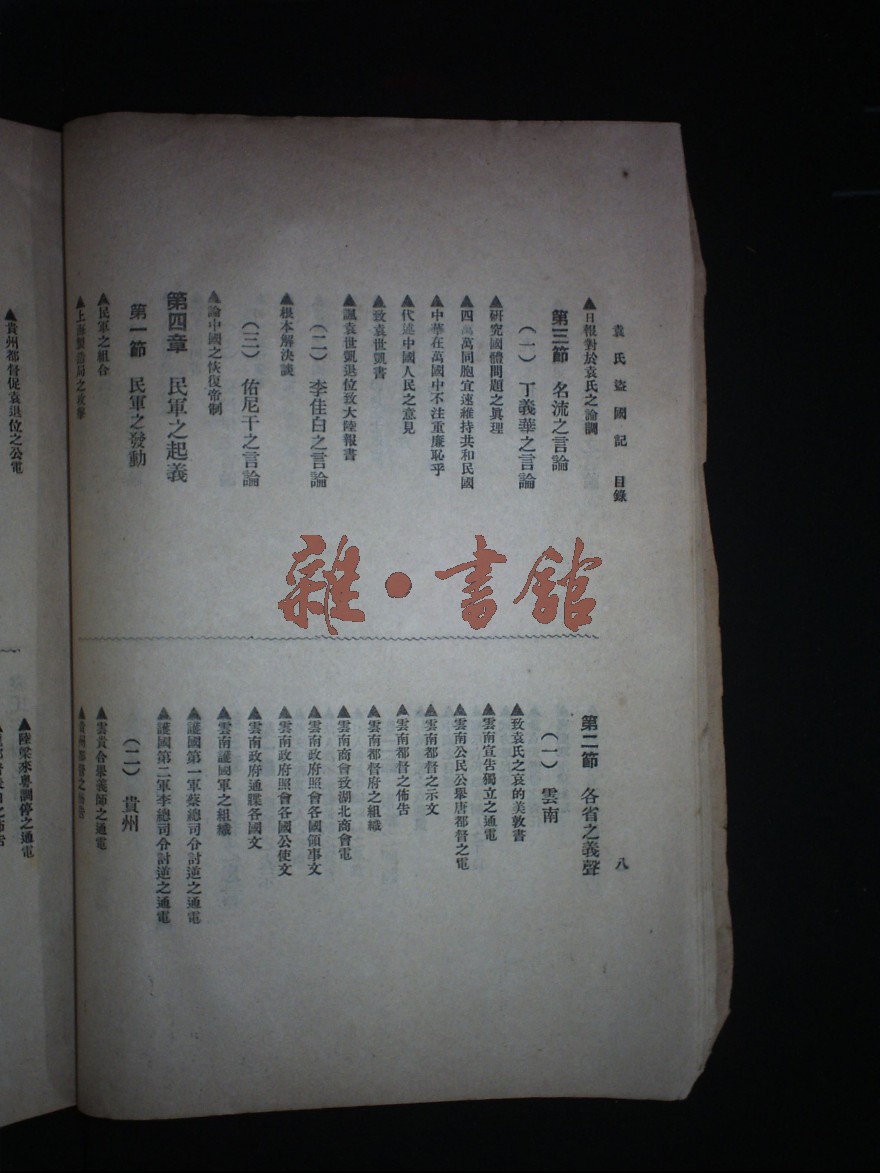 袁氏盜國記 目錄 八
▲日報對於袁氏之論調
第三節 名流之言論
（一）丁義華之言論
▲研究國體問題之眞理
▲四萬萬同胞宜速維持共和民國
▲中華在萬國中不注重廉恥乎
▲代述中國人民之意見
▲致袁世凱書
▲諷袁世凱退位致大陸報書
（二）李佳白之言論
▲根本解決談
（三）佑尼干之言論
▲論中國之恢復帝制
第四章 民軍之起義
第一節 民軍之發動
▲民軍之組合
▲上海製造局之攻擊
第二節 各省之義聲
（一）雲南
▲致袁氏之哀的美敦書
▲雲南宣告獨立之通電
▲雲南公民公舉唐都督之電
▲雲南都督之示文
▲雲南都督之佈告
▲雲南都督府之組織
▲雲南商會致湖北商會電
▲雲南政府照會各國領事文
▲雲南政府照會各國公使文
▲雲南政府通牒各國文
▲雲南護國軍之組織
▲護國第一軍蔡總司令討逆之通電
▲護國第二軍李總司令討逆之通電
（二）貴州
▲雲貴合舉義師之通電
▲貴州都督之佈告
▲貴州都督促袁退位之公電
▲陸梁來粵調停之通電
雜·書館